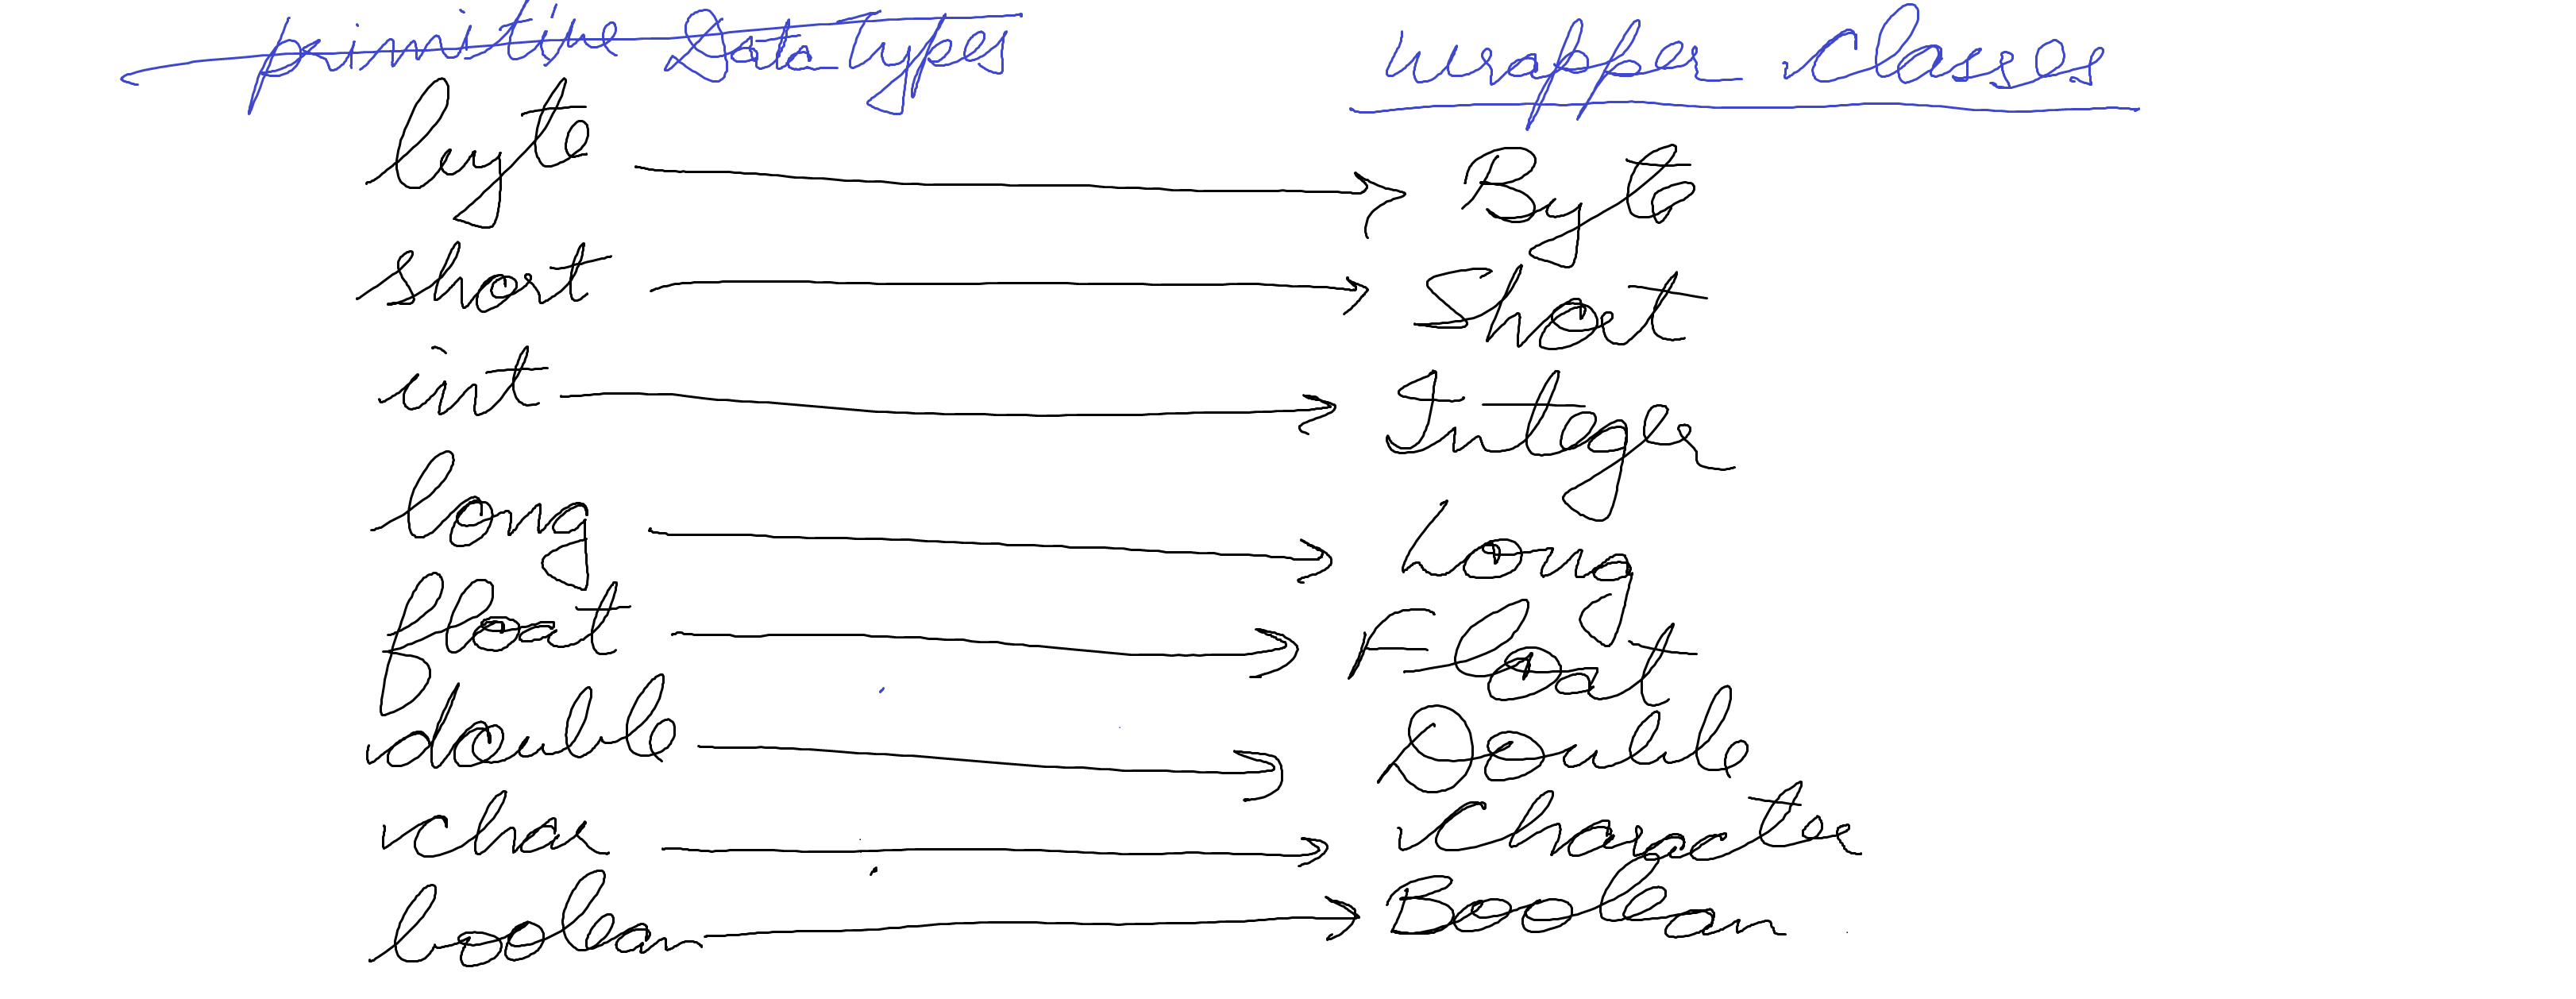 primitive Data Types wrapper classes
byte Byte
short Short
int Integer
long Long
float Float
double Double
char Character
boolean Boolean